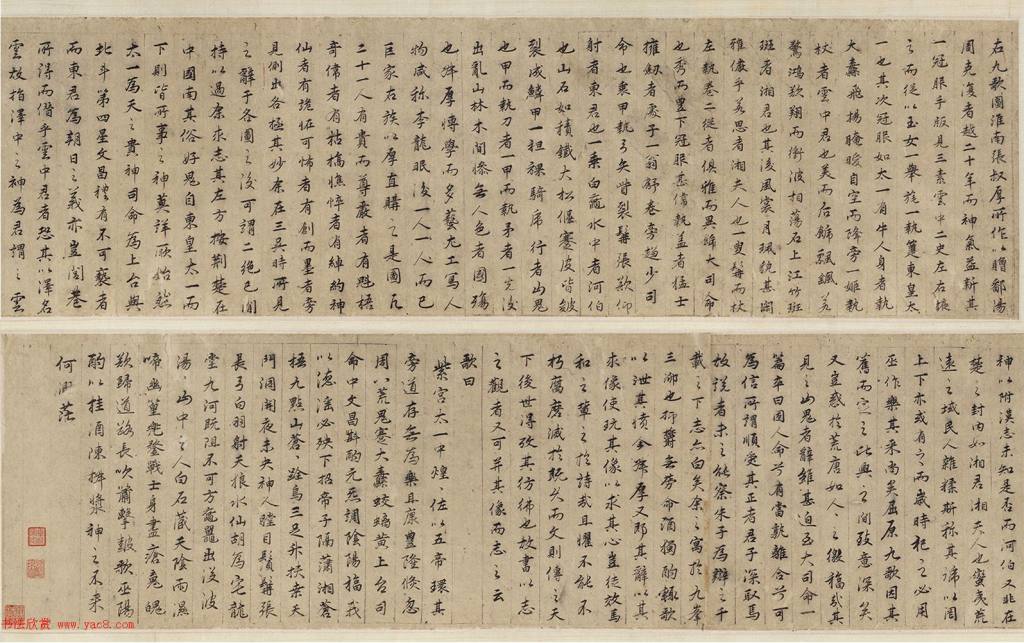 右九歌圖淮南張叔厚所作以贈鄱陽
周克復者越二十年而神氣益新其
一冠服手版見三素雲中二史左右掖
之而從以玉女一舉旌一執簦東皇太
一也其次冠服如太一有牛人身者執
大纛飛揚晻曖自空而降旁一姬執
杖者雲中君也美而后飾飄飄若
驚鴻欻翔而衝波相蕩石上江竹班
班者湘君也其後風裳月珮貌甚閑
雅儼乎若思者湘夫人也一叟髯而杖
左執卷二從者俱雅而異飾大司命
也秀而豊下冠服甚偉執蓋者猛士
擁劒者處子一翁舒卷旁趨少司
命也裹甲執弓矢眥裂鬚張欻仰
射者東君也一乘白黿水中者河伯
也山石如積鐵大松偃蹇皮皆皴
裂成鱗甲一袒裸騎虎行者山鬼
也甲而執刀者一甲而執矛者一先後
出亂山林木間慘無人色者國殤
也叔厚博學而多藝尤工寫人
物咸称李龍眠後一人一人而已
巨家右族以厚直購之是圖凡
二十一人有貴而尊嚴者有魁梧
奇偉者有枯槁憔悴者有綽約神
仙者有詭怪可怖者有創而墨者旁
見側出各極其妙余在三吳時所見
之辭于各圖之後可謂二絕已間
持以過余求志其左方按荆楚在
中國南其俗好鬼自東皇太一而
下則皆所事之神莫詳厥始然
太一為天之貴神司命為上台與
北斗第四星文昌禮有不可褻者
而東君為朝日之義亦豈閭巷
所得而僭乎雲中君者恐其以澤名
雲故指澤中之神為君謂之雲
神以附漢志未知是否而河伯又非在
楚之封内如湘君湘夫人也蠻夷荒
遠之域民人雜糅斯称其以周
上下亦或有之而歲時祀之必用
巫作樂其来尚矣屈原九歌因其
舊而定之比興之間致意深矣
又豈惑於荒唐如人人之徼福哉其
見之山鬼者辭雖甚迫至大司命一
篇卒曰固人命兮有當孰離合兮可
為信所謂順受其正者君子深取焉
故説者未之能察朱子為辯之千
載之下志亦白矣余之寓於九峯
三泖也抑鬱無命酒獨酌歌
以泄其憤今叔厚又即其辭以其
求像使玩其像以求其心豈徒馬
和之輩之於詩哉且懼不能不
朽磨滅於既久而文則傳之天
下後世得攷其彷彿也故書以志
之觀者又可并其像而志之云
歌曰
紫宮太一中煌煌佐以五帝環其
旁道存無為樂且康豐隆倏忽
周八荒鬼蹇大纛蛟螭黄上台司
命中文昌斟酌元氣調陰陽福哉
以德淫必殃下招帝子隔瀟湘蒼
梧九點山蒼蒼跧烏三足升扶桑天
門洞開夜未央神人瞠目鬚髯張
長弓白羽射天狼水仙胡為宅龍
堂九河既阻不可方黿鼉出没波
湯湯山中之人白石藏天陰雨濕
啼幽篁兜鍪戰士身盡瘡鬼魄
欻歸道路長吹簫擊皷歌巫陽
酌以桂酒陳椒漿神之不来
何渺茫
书法欣赏 www.yac8.com